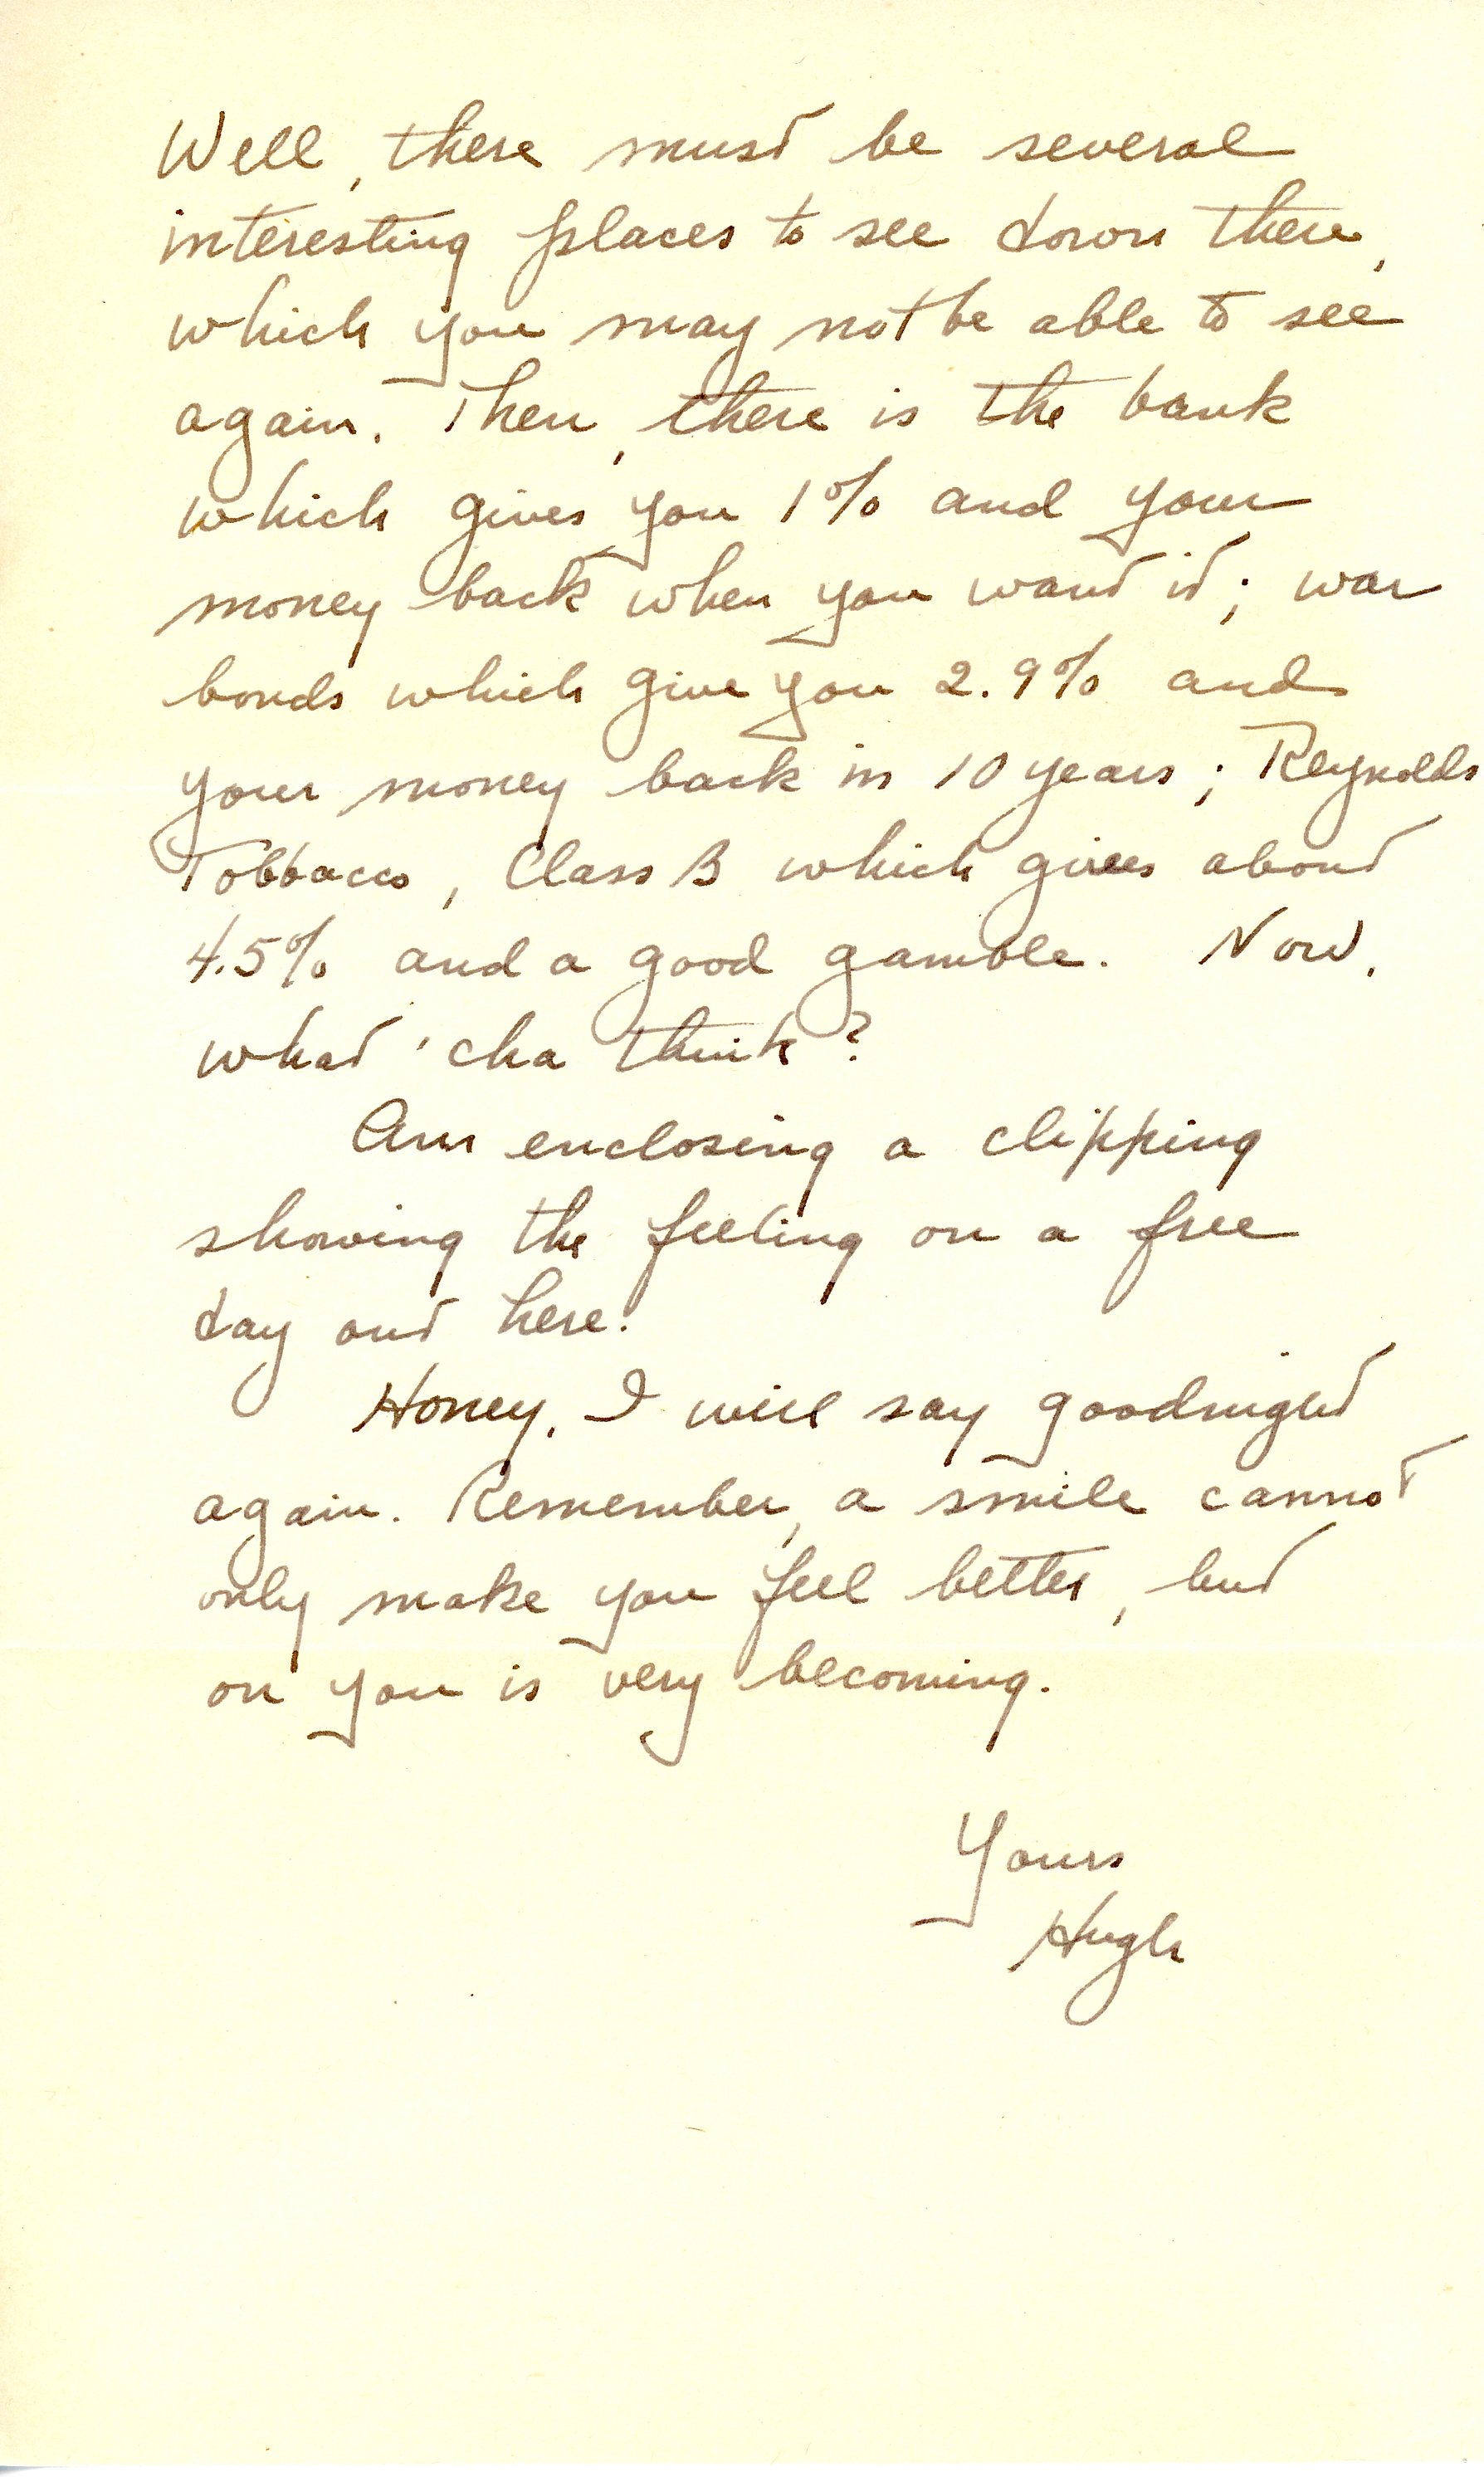 Well, there must be several
interesting places to see down there,
which you may not be able to see
again. Then, there is the bank
which gives you 1% and your
money back when you want it; war
bonds which give you 2.9% and
your money back in 10 years; Reynolds
Tobbacco, Class B which gives about
4.5% and a good gamble. Now,
what 'cha think?
Am enclosing a clipping
showing the feeling on a free
day out here.
Honey, I will say goodnight
again. Remember, a smile cannot
only make you feel better, but
on you is very becoming.
Yours
Hugh